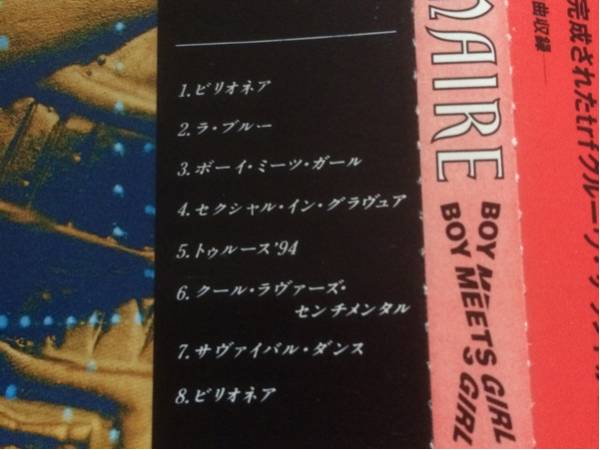 1.ビリオネア
2.ラ・ブルー
3.ボーイ・ミーツ・ガール
4.セクシャル・イン・グラヴュア
5.トゥルース'94
6.クール・ラヴァーズ・
センチメンタル
7.サヴァイバル・ダンス
8.ビリオネア
NAIRE
BOY MEETS GIRL
BOY MEETS GIRL
完成されたtrfグルーヴ
曲収録